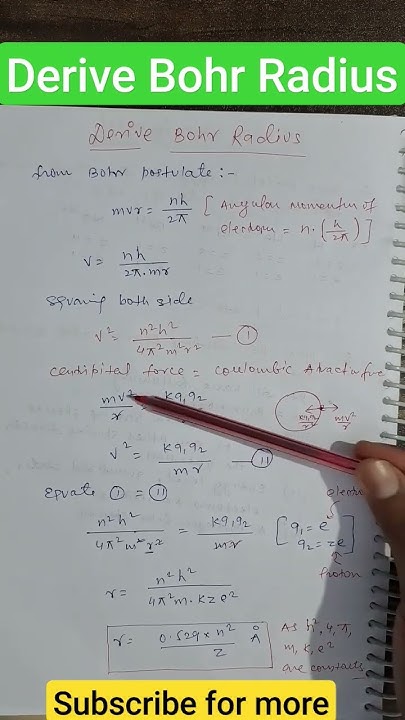 Derive Bohr Radius
Derive Bohr Radius
from Bohr postulate :-
mvr = nh/2π [Angular Momentum of electron = n.(h/2π)]
v = nh/2π.mr
squaring both side
v² = n²h²/4π²m²r² — I
force = coulombic
mv²/r = kq₁q₂
kq₁q₂/r² mv²/r
v² = kq₁q₂/mr — II
Equate I = II
n²h²/4π²m²r² = kq₁q₂/mr [q₁ = e q₂ = ze]
proton
r = n²h²/4π²m.kze²
r = 0.529 x n²/z Å
As h², 4, π,
m, k, e²
are constants
Subscribe for more